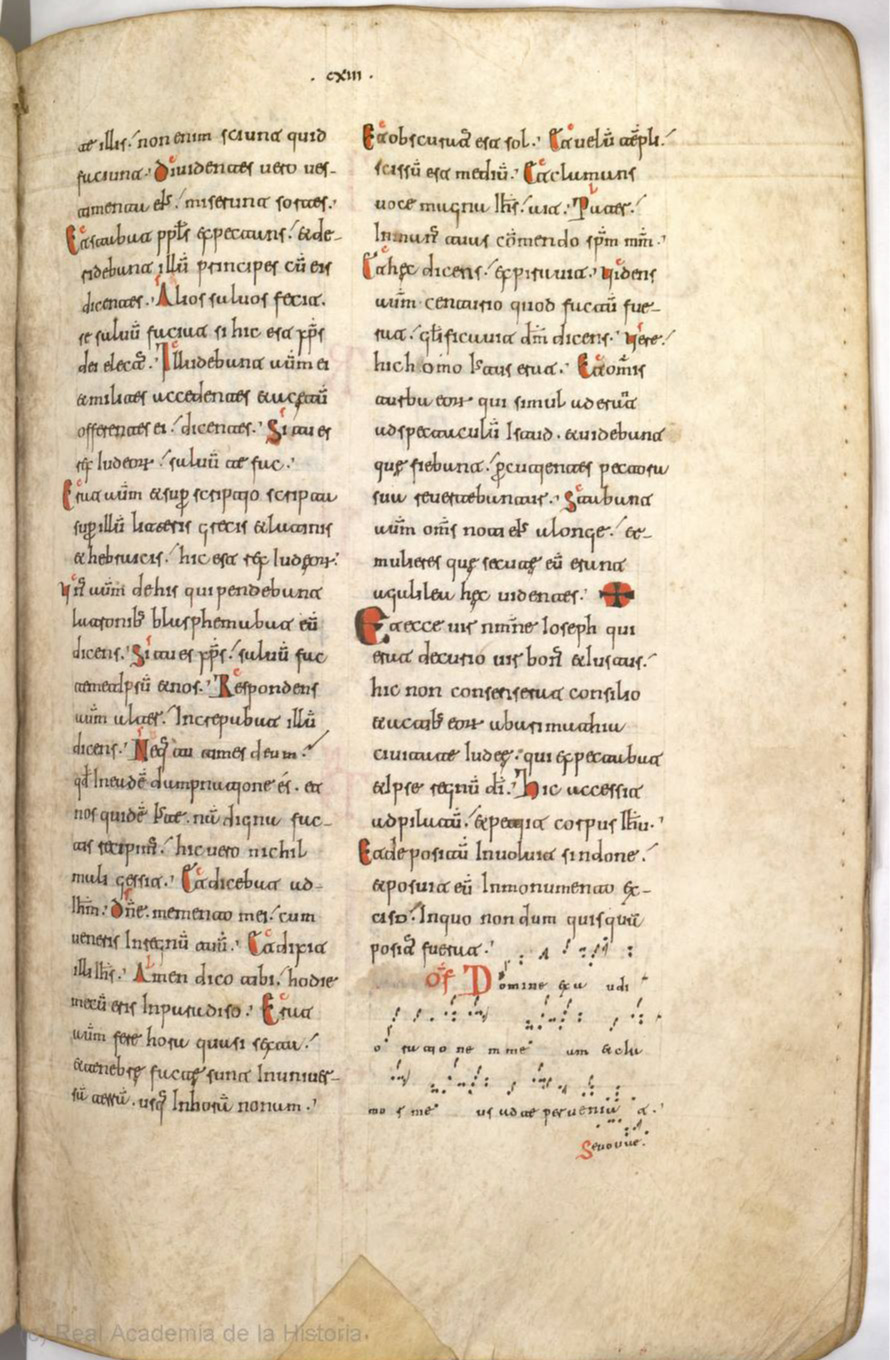 . cxiii .
te illis. non enim sciunt quid
faciunt. Dividentes vero ves-
timenta eī. miserunt sortes.
Et stabat ppl̄s expectans. & de-
ridebant illū principes cū eis
dicentes. Alios salvos fecit.
se salvū faciat si hic est xp̄s
dei elect'. Illudebant aūm ei
& milites accedentes & acetū
offerentes ei. dicentes. Si tu es
rex Iudeor. salvū te fac.
Erat aūm & sup scriptio scripta
sup illū litteris grecis & latinis
& hebraicis. hic est rex Iudeor.
un' aūm de his qui pendebant
latronib' blasphemabat eū
dicens. Si tu es xp̄s. salvū fac
temetipsū & nos. Respondens
aūm alter. Increpabat illū
dicens. Neq' tu times deum.
qd' In eadē dampnatione es. et
nos quidē Iste. nā digna fac-
tis recipim'. hic vero nichil
mali gessit. Et dicebat ad
Ihm̄. Dn̄e. memento mei. cum
veneris In regnū tuū. Et dixit
illi Ihs̄. Amen dico tibi. hodie
mecū eris In paradiso. Erat
aūm fere hora quasi sexta.
& tenebre facte sunt In univer-
sā terrā. usq' In horā nonam.
Et obscurat' est sol. Et velū tēpli.
scissū est mediū. Et clamans
voce magna Ihs̄. ait. Pater.
In man' tuas cōmendo spm̄ mm̄.
Et hec dicens. expiravit. videns
aūm centurio quod factū fue-
rat. glificavit dm̄ dicens. vere.
hic homo Ius' erat. Et om̄is
turba eor qui simul aderāt
ad spectaculū Istud. & videbant
que fiebant. pcutientes pectora
sua revertebantur. Stabant
aūm om̄s noti eī a longe. &
mulieres que secute eū erant
a galilea hec videntes.
Et ecce vir nm̄ne Ioseph qui
erat decurio vir bon' & Iustus.
hic non consenserat consilio
& actib' eor ab arimathia
civitate Iudee. qui expectabat
& Ipse regnū dī. Hic accessit
ad pilatū. & petiit corpus Ihu.
Et depositū Involvit sindone.
& posuit eū In monumento ex-
ciso. In quo non dum quisquā
posit' fuerat.
Of̄ Domine exaudi
oratione m me am & cla
mor me us ad te perveniat.
Sevovae.
(c) Real Academia de la Historia